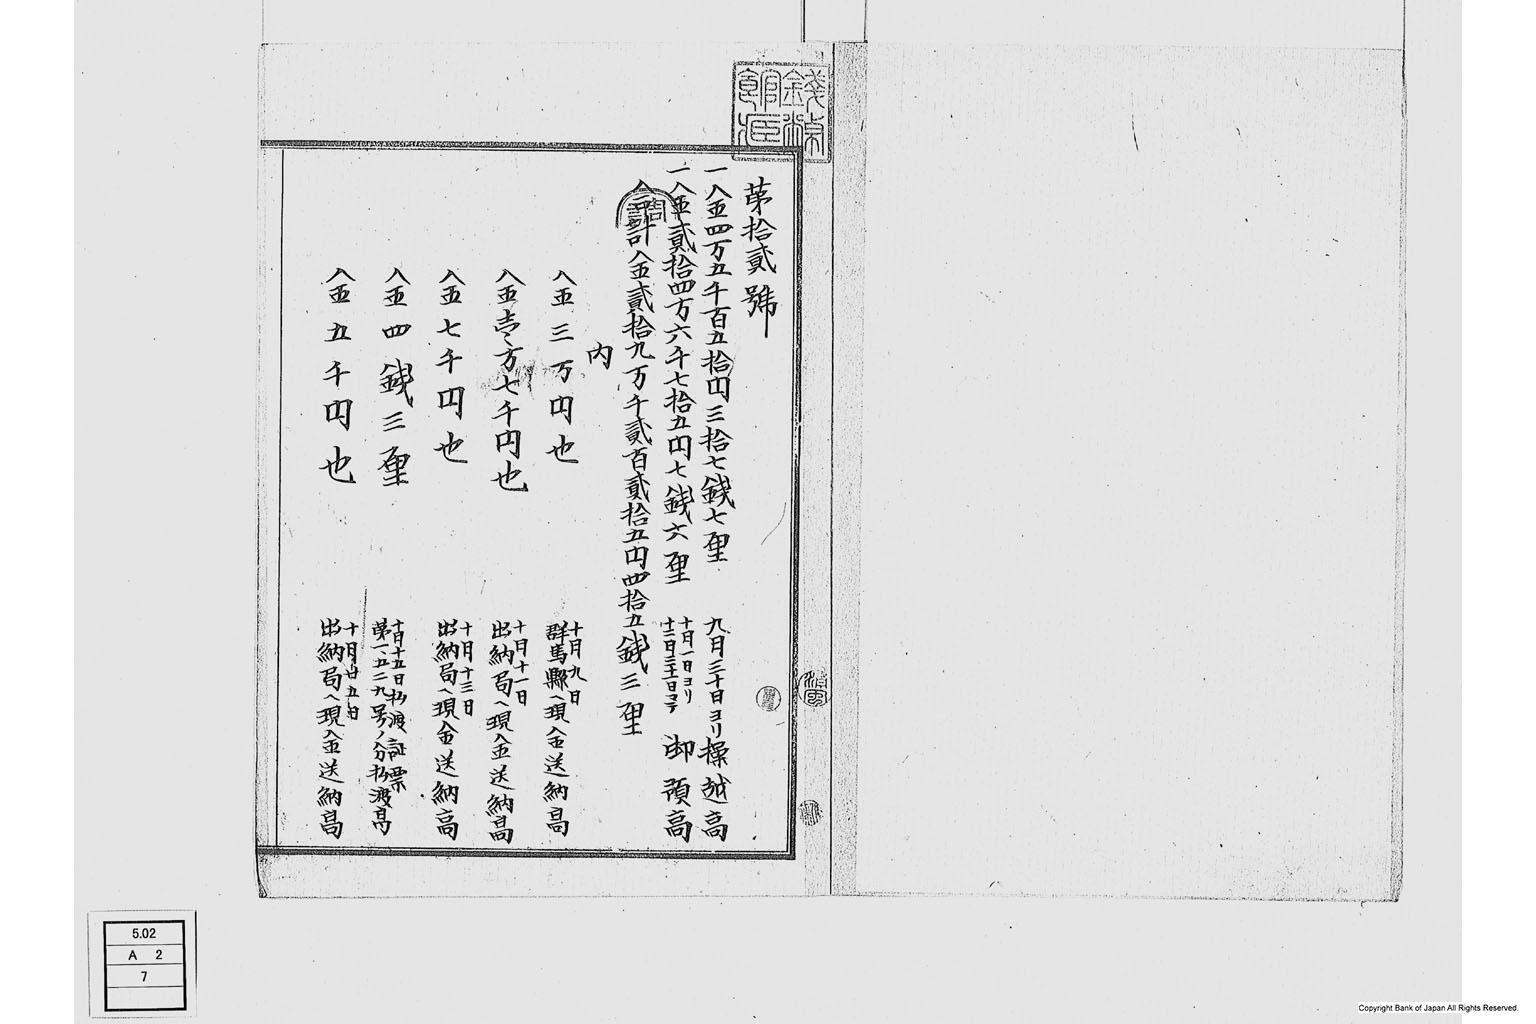 第拾貳號
一金四万五千百五拾円三拾七銭七厘 九月三十日ヨリ操越高
一金貳拾四万六千七拾五円七銭六厘 十月一日ヨリ十二月三十一日マテ 御預高
合計金貳拾九万千貳百貳拾五円四拾五銭三厘
内
金三万円也 十月九日群馬縣ヘ現金送納高
金壱万七千円也 十月十一日出納局ヘ現金送納高
金七千円也 十月十三日出納局ヘ現金送納高
金四銭三厘 十月十五日払渡証票第一五二九号ノ分払渡高
金五千円也 十月廿五日出納局ヘ現金送納高
5.02
A 2
7
Copyright Bank of Japan All Rights Reserved.